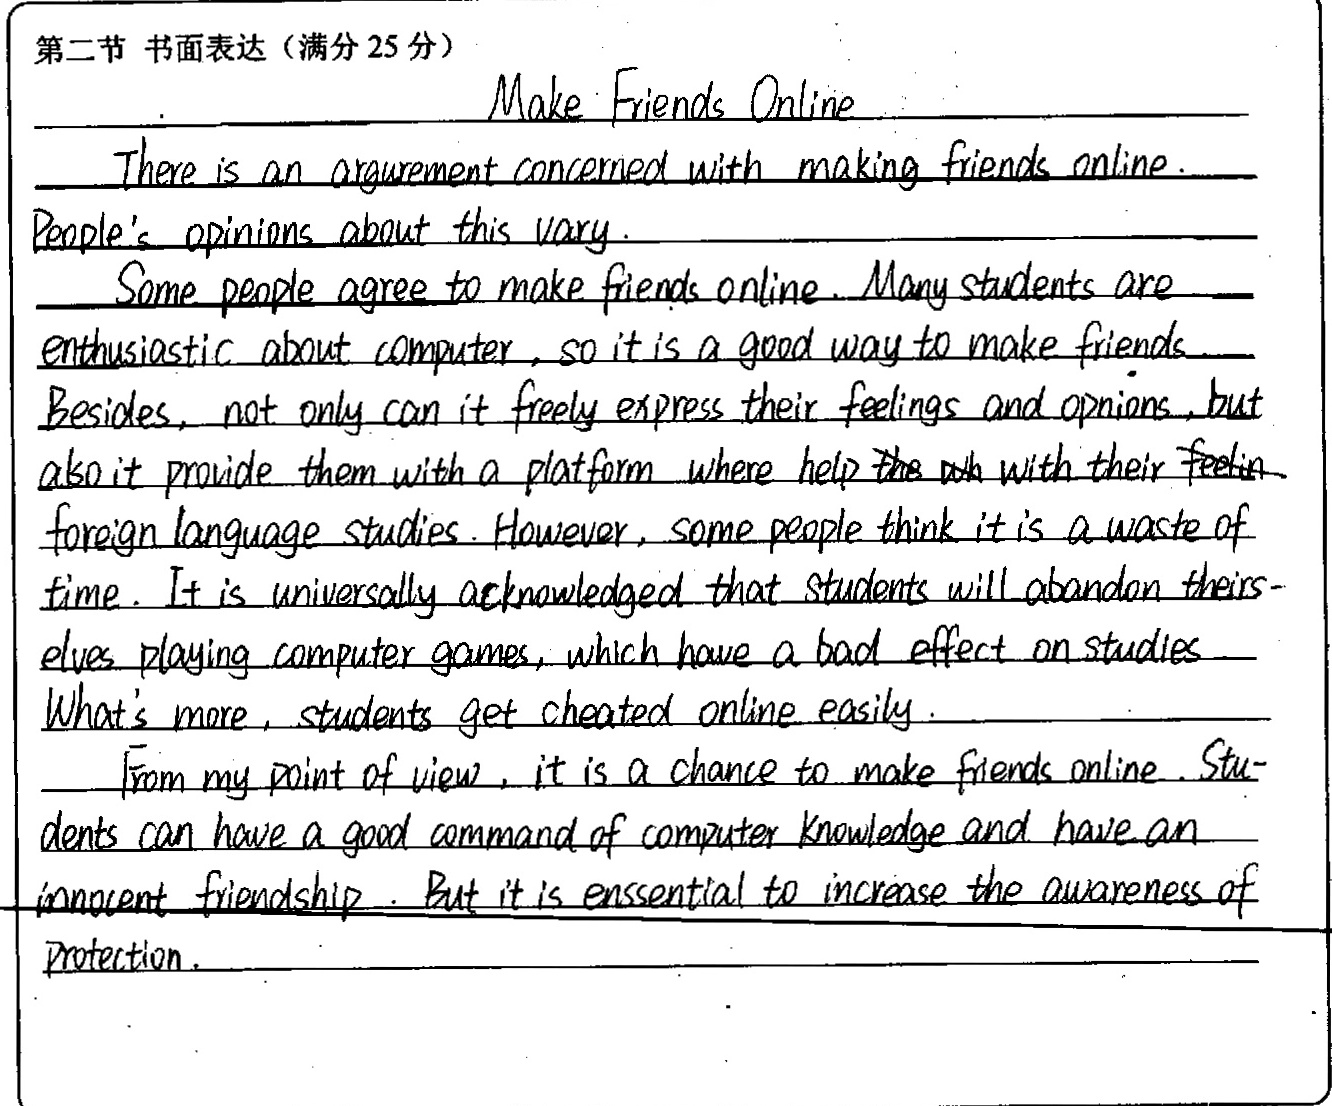 第二节 书面表达（满分 25 分）
Make Friends Online
There is an argurement concerned with making friends online.
People's opinions about this vary.
Some people agree to make friends online. Many students are
enthusiastic about computer, so it is a good way to make friends
Besides, not only can it freely express their feelings and opnions, but
also it provide them with a platform where help the wh with their feelin
foreign language studies. However, some people think it is a waste of
time. It is universally acknowledged that students will abandon theirs-
elves playing computer games, which have a bad effect on studies
What's more, students get cheated online easily.
From my point of view, it is a chance to make friends online. Stu-
dents can have a good command of computer knowledge and have an
innocent friendship. But it is enssential to increase the awareness of
protection.